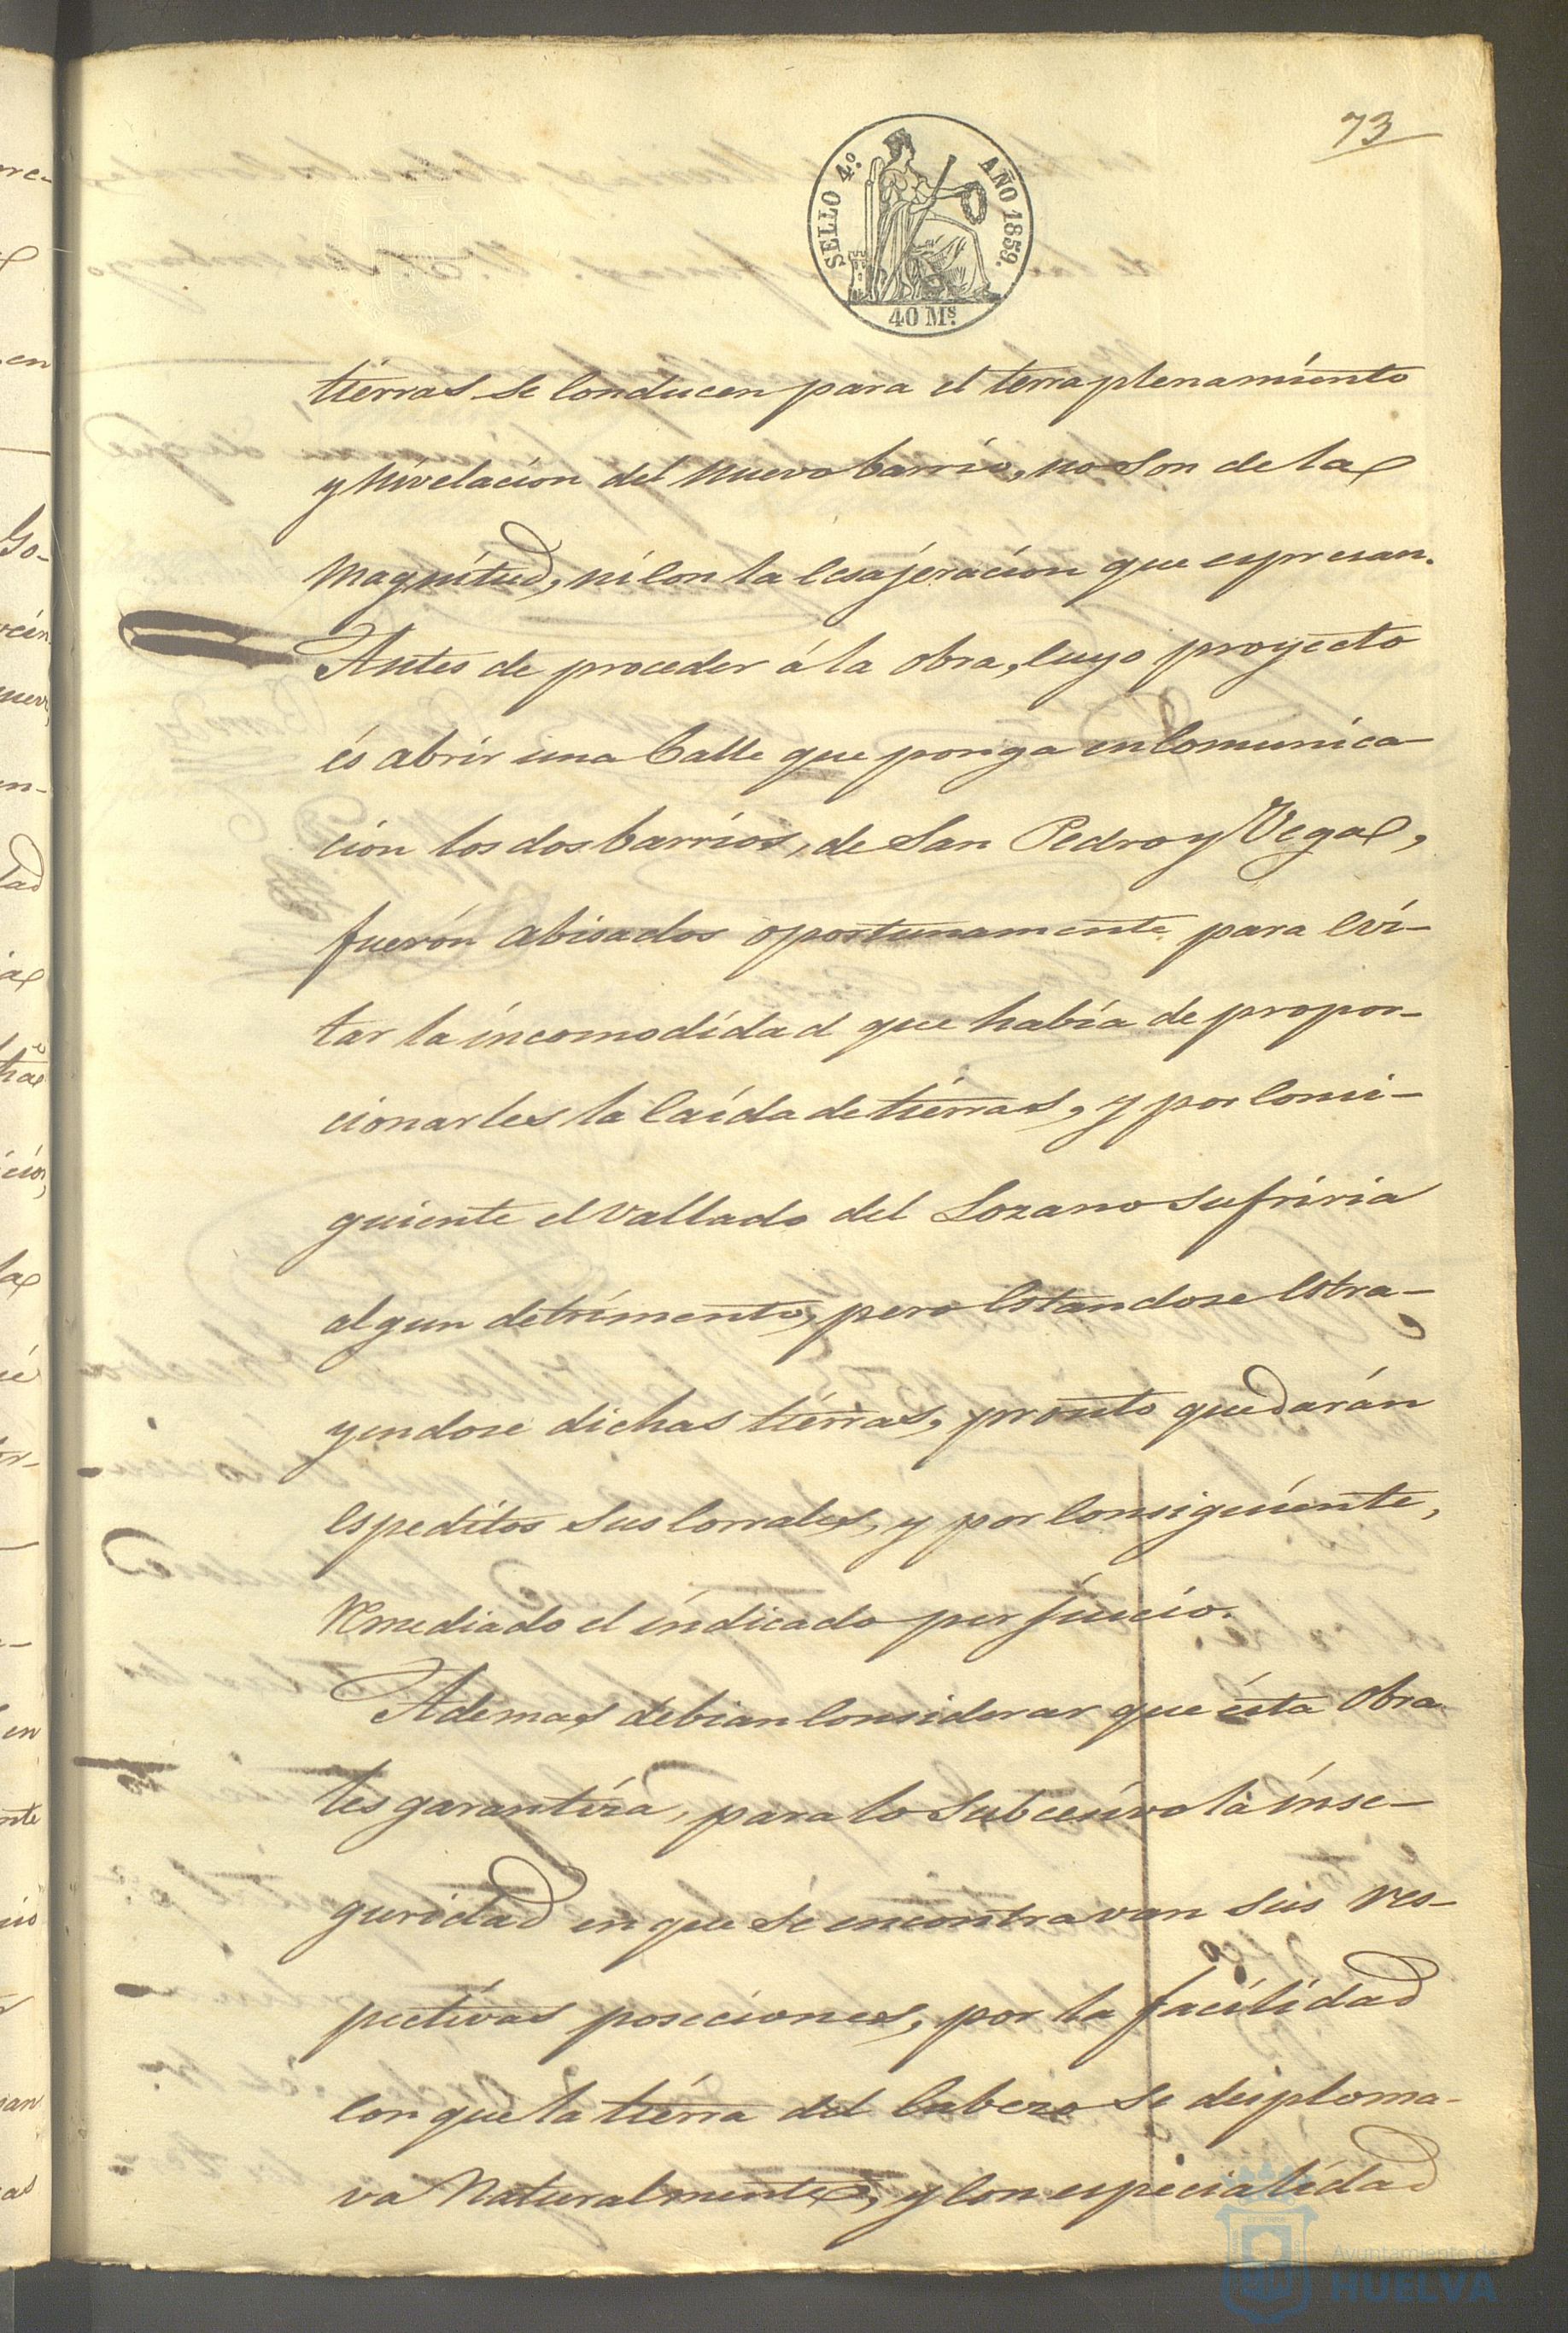 73
SELLO 4.º AÑO 1859.
40 M.s
tierras se conducen para el terraplenamiento
y Nivelacion del Nuevo barrio, no son de la
magnitud, ni con la esajeracion que espresan.
Antes de proceder á la obra, cuyo proyecto
és abrir una Calle que ponga en Comunica-
cion los dos barrios, de San Pedro y Vega,
fuerón abisados oportunamente para evi-
tar la incomodidad que había de propor-
cionarles la caída de tierras, y por consi-
guiente el vallado del Lozano sufriria
algun detrimento, pero Estandose Estra-
yendose dichas tierras, pronto quedarán
espeditos sus Corrales, y por Consiguiente,
Remediado el indicado perjuicio.
Ademas debian Considerar que ésta obra
les garantiza, para lo Subcecivo la inse-
guridad en que se encontravan sus res-
pectivas posiciones, por la facilidad
con que la tierra del Cabezo se desploma-
va Naturalmente, y con especialidad
Ayuntamiento de
HUELVA